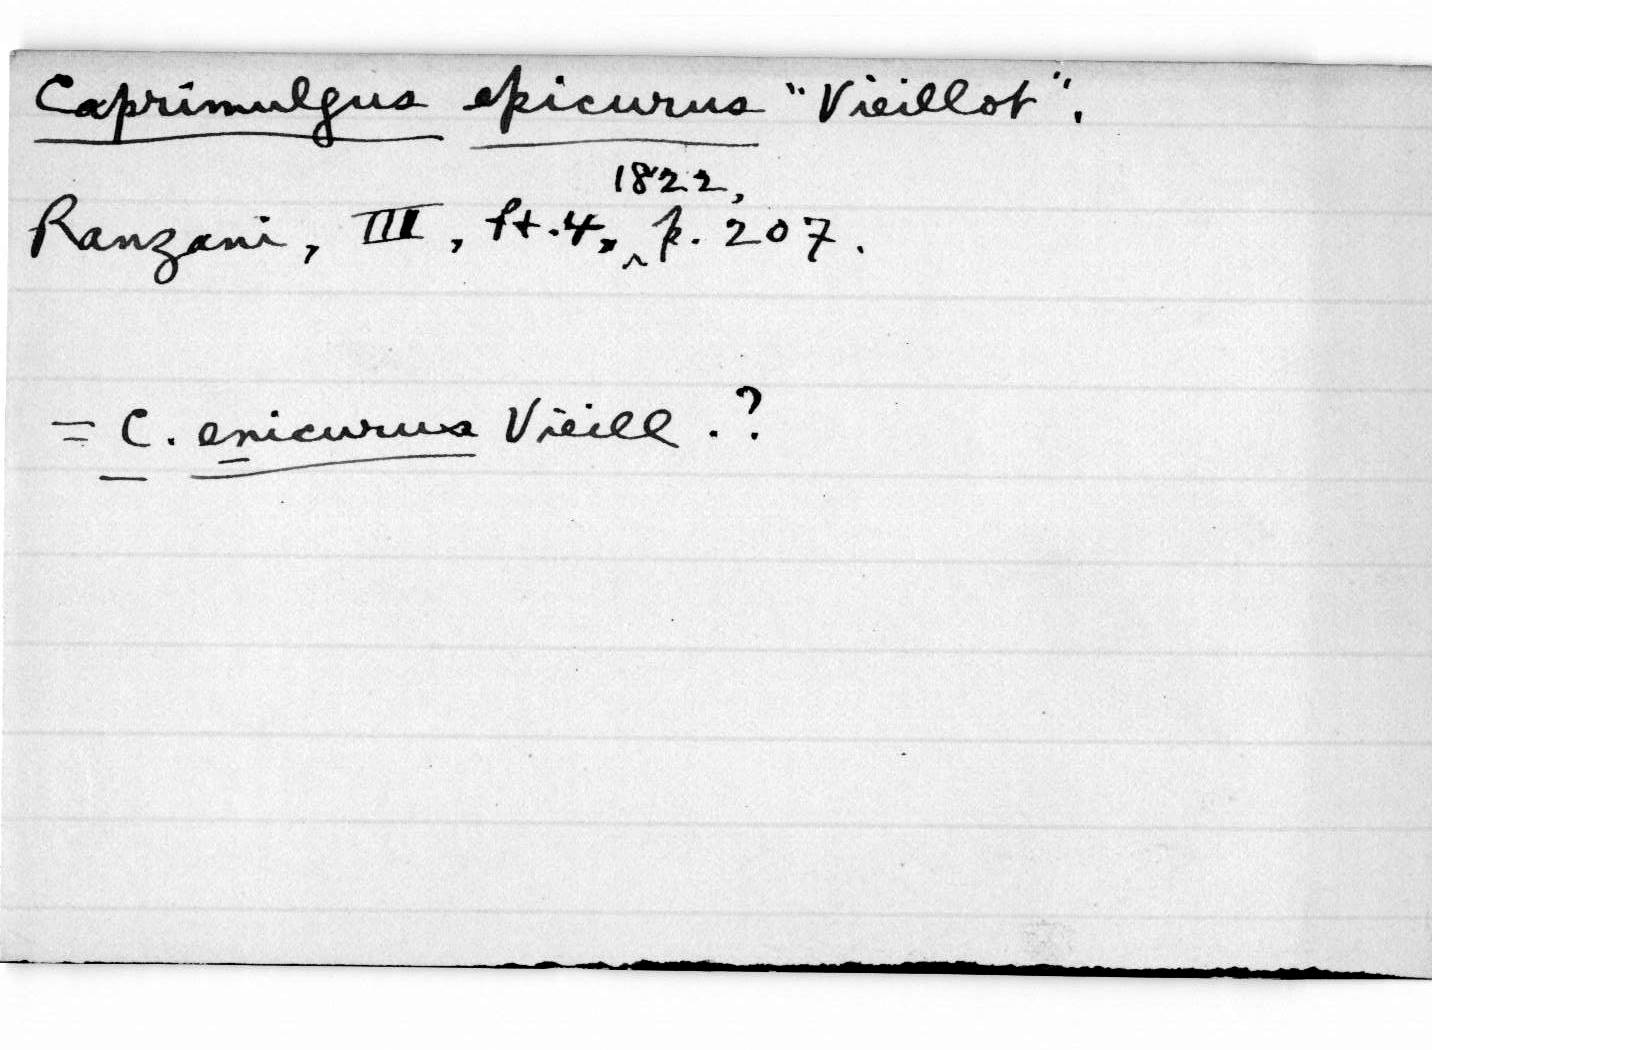 Caprimulgus epicurus "Vieillot".
1822,
Ranzani, III, pt. 4, ^ p. 207.
= C. enicurus Vieill. ?